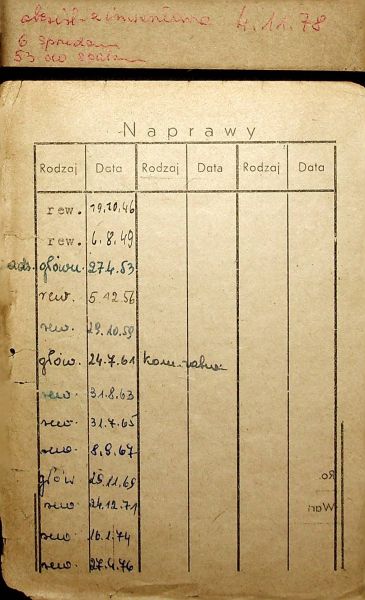 4.11.78
6
53 do
Naprawy
Rodzaj Data Rodzaj Data Rodzaj Data
rew. 19.10.46
rew. 6.8.49
główn. 27.4.53
rew. 5.12.56
rew. 29.10.59
głów. 24.7.61
rew. 31.8.63
rew. 31.7.65
rew. 8.9.67
głów 25.11.69
rew 24.12.71
rew. 16.1.74
rew. 27.4.76